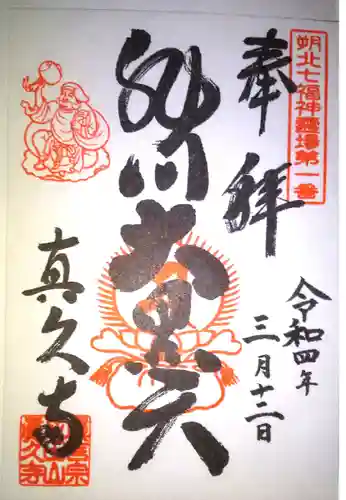 朔北七福神霊場第一番
奉拝
令和四年
三月十二日
大黒天
真久寺